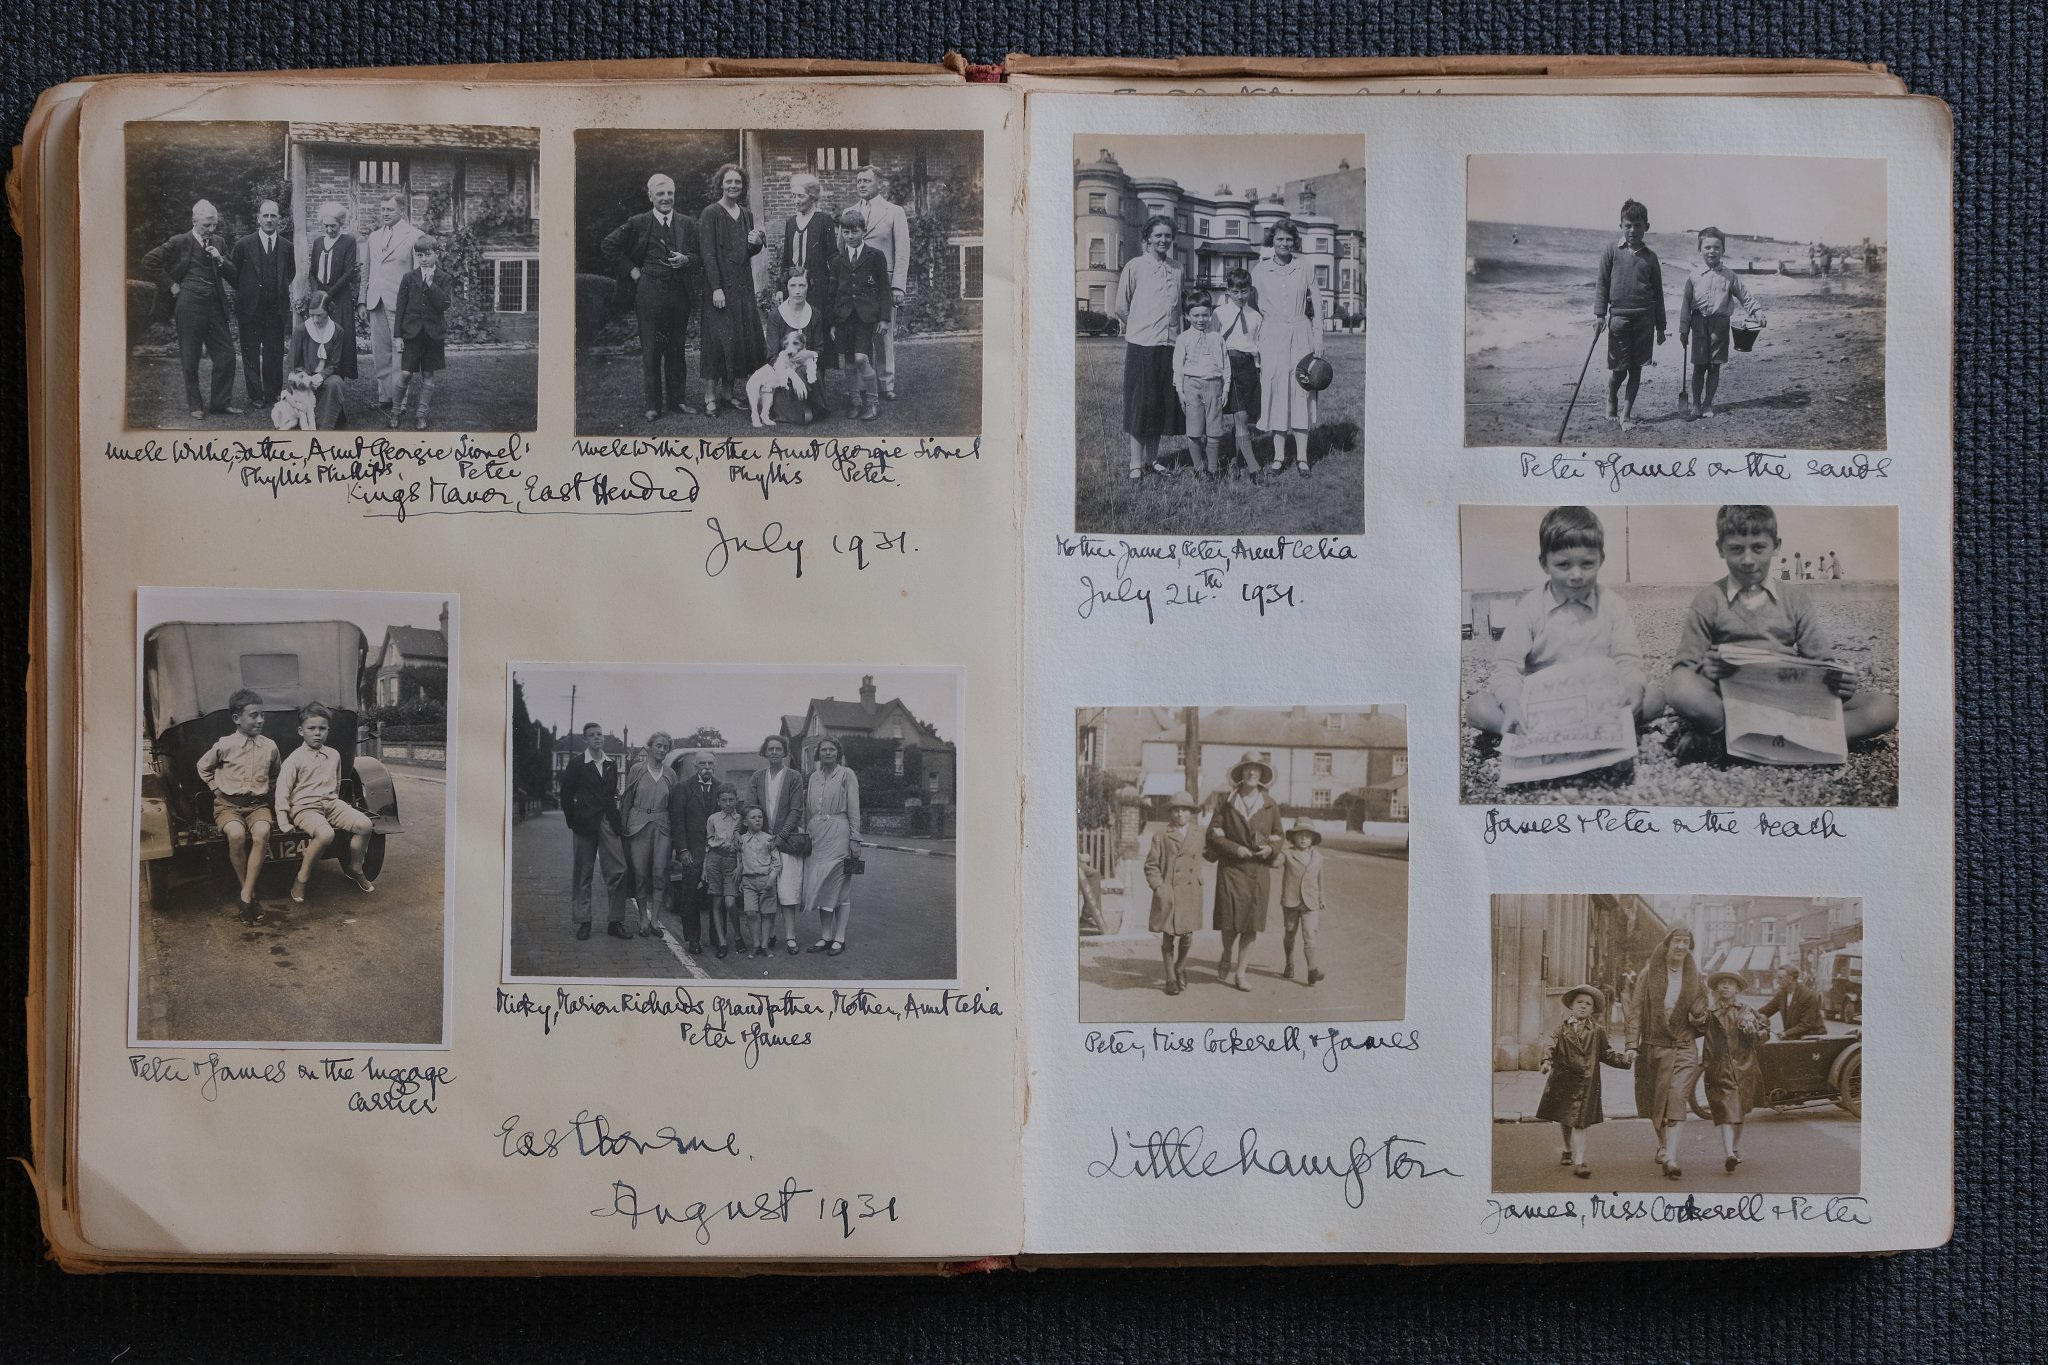 Uncle Willie, Father, Aunt Georgie Lionel,
Phyllis Phillips, Peter
Uncle Willie, Mother Aunt Georgie Lionel
Phyllis Peter.
Kings Manor, East Hendred
July 1931.
A 124
Peter & James on the luggage
carrier
Nicky, Marion Richards, Grandfather, Mother, Aunt Celia
Peter & James
Eastbourne.
August 1931
Mother James, Peter, Aunt Celia
July 24th. 1931.
Peter & James on the sands
James & Peter on the beach
Peter, Miss Cockerell, & James
Littlehampton
James, Miss Cockerell & Peter